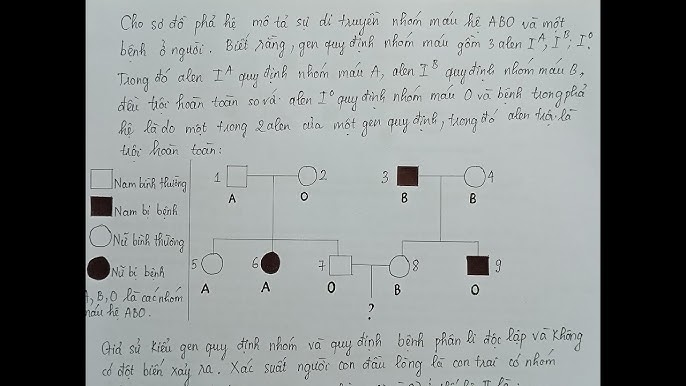 Cho sơ đồ phả hệ mô tả sự di truyền nhóm máu hệ ABO và một
bệnh ở người. Biết rằng, gen quy định nhóm máu gồm 3 alen I^A, I^B; I^o.
Trong đó alen I^A quy định nhóm máu A, alen I^B quy định nhóm máu B,
đều trội hoàn toàn so với alen I^o quy định nhóm máu O và bệnh trong phả
hệ là do một trong 2 alen của một gen quy định, trong đó alen trội là
trội hoàn toàn:
Nam bình thường
Nam bị bệnh
Nữ bình thường
Nữ bị bệnh
A, B, O là các nhóm
máu hệ ABO.
1 2 3 4
A O B B
5 6 7 8 9
A A O B O
?
Giả sử kiểu gen quy định nhóm và quy định bệnh phân li độc lập và không
có đột biến xảy ra. Xác suất người con đầu lòng là con trai có nhóm